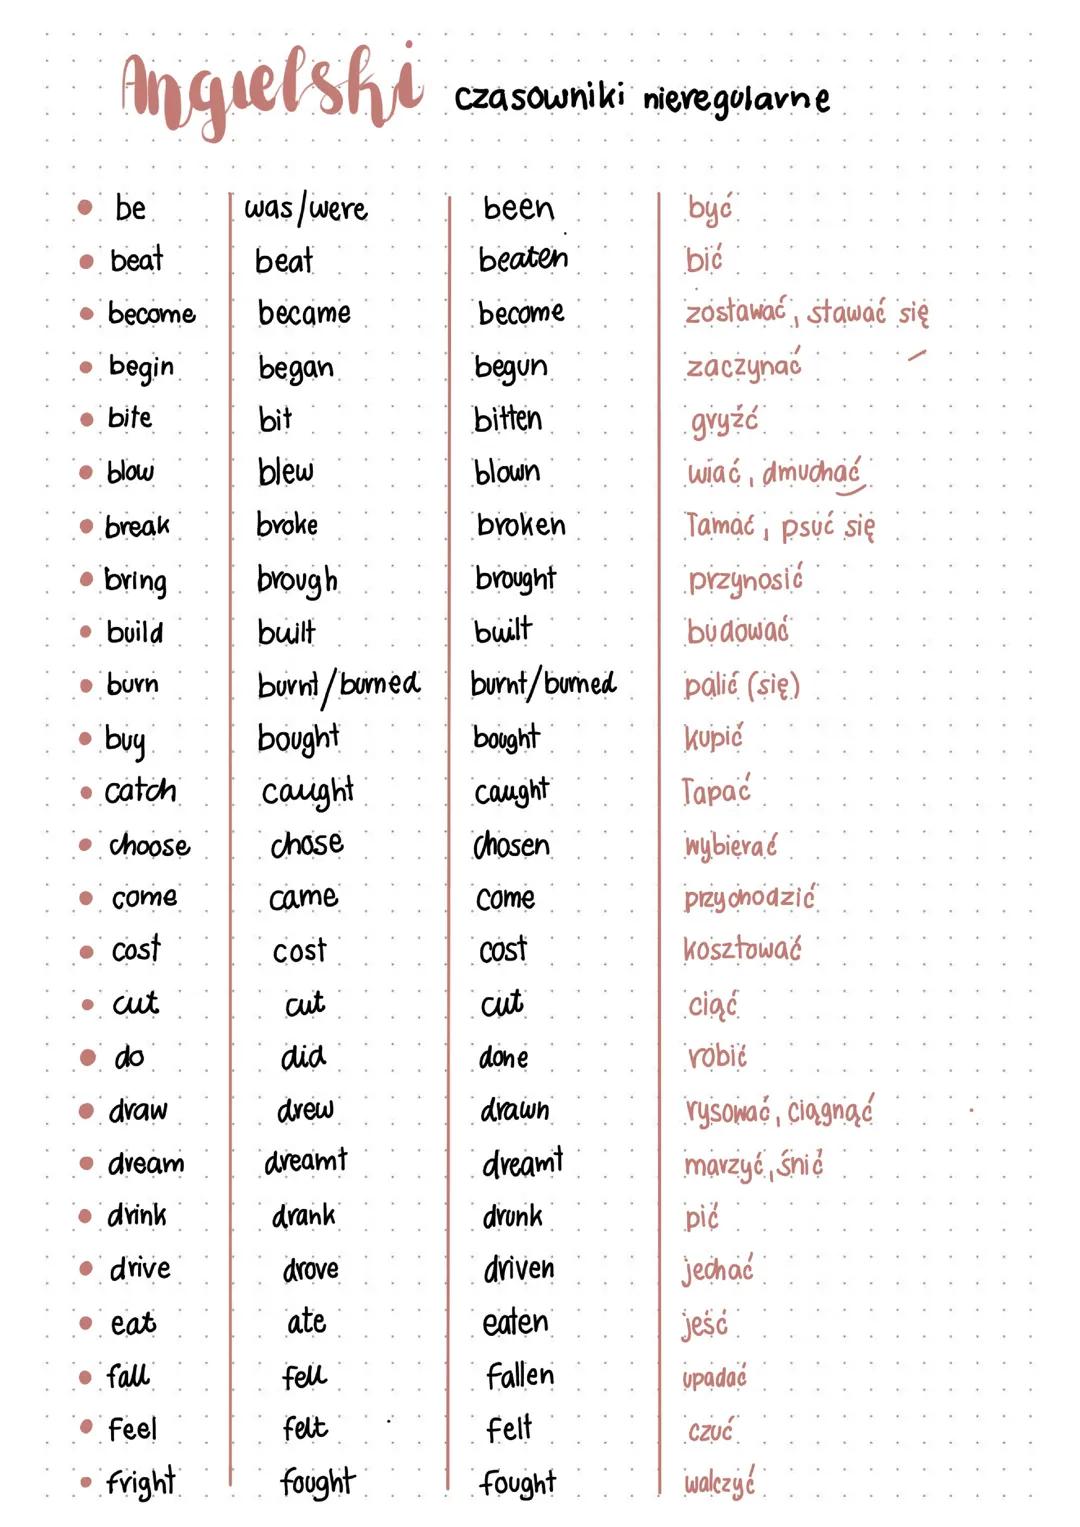 Angielski czasowniki nieregularne
be was/were been być
beat beat beaten bić
become became become zostawać, stawać się
begin began begun zaczynać
bite bit bitten gryźć
blow blew blown wiać, dmuchać
break broke broken łamać, psuć się
bring brough brought przynosić
build built built budować
burn burnt/burned burnt/burned palić (się)
buy bought bought kupić
catch caught caught łapać
choose chose chosen wybierać
come came come przychodzić
cost cost cost kosztować
cut cut cut ciąć
do did done robić
draw drew drawn rysować, ciągnąć
dream dreamt dreamt marzyć, śnić
drink drank drunk pić
drive drove driven jechać
eat ate eaten jeść
fall fell fallen upadać
feel felt felt czuć
fright fought fought walczyć